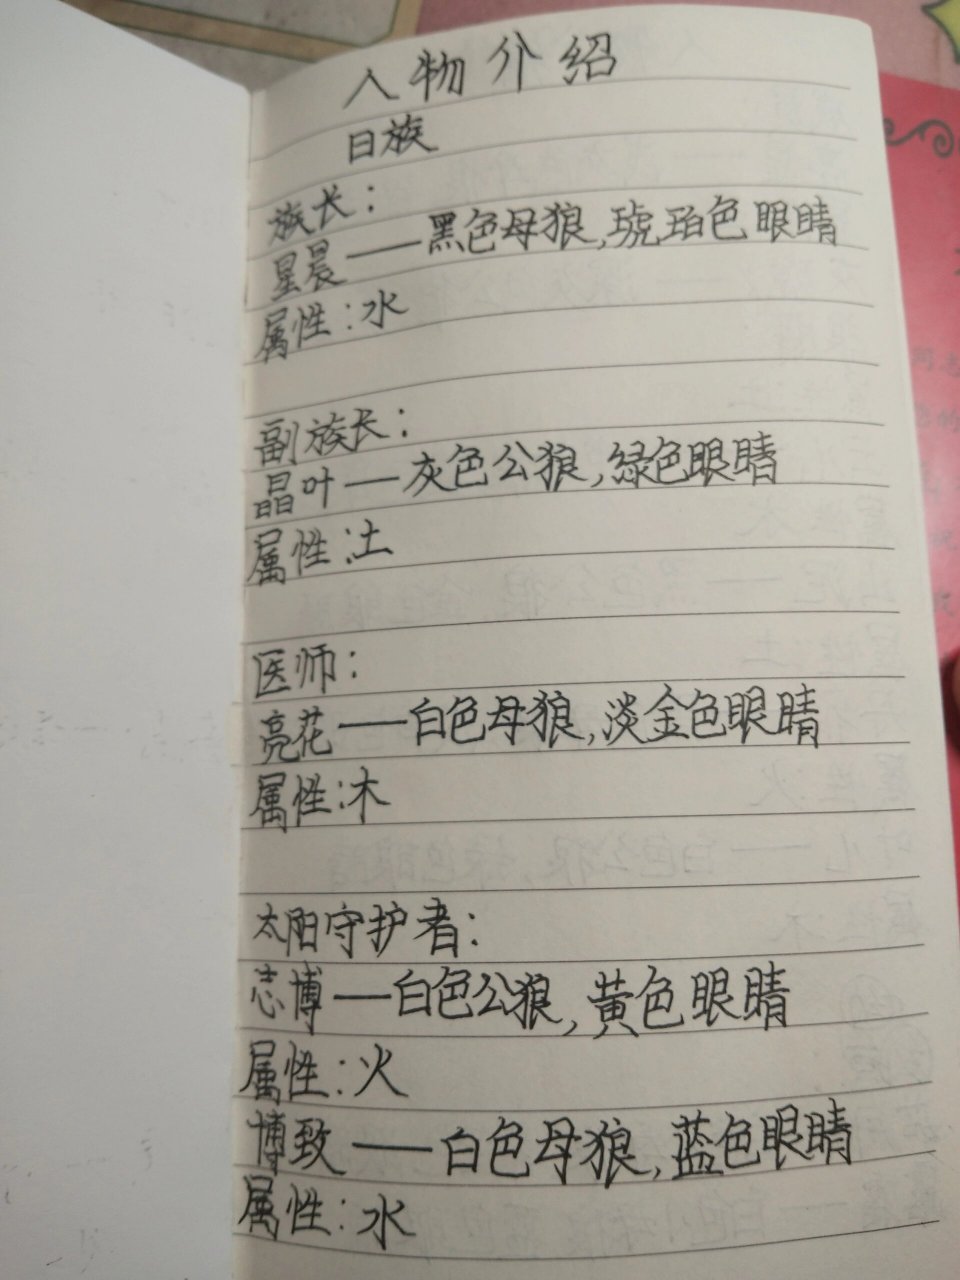 人物介绍
日族
族长：
星晨——黑色母狼,琥珀色眼睛
属性：水
副族长：
晶叶——灰色公狼,绿色眼睛
属性：土
医师：
亮花——白色母狼,淡金色眼睛
属性：木
太阳守护者：
志博——白色公狼,黄色眼睛
属性：火
博致——白色母狼,蓝色眼睛
属性：水